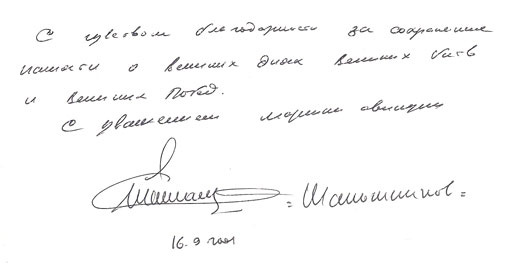 С чувством благодарности за сохранение
памяти о великих днях великих битв
и великих побед.
С уважением маршал авиации
= Шапошников =
16.9